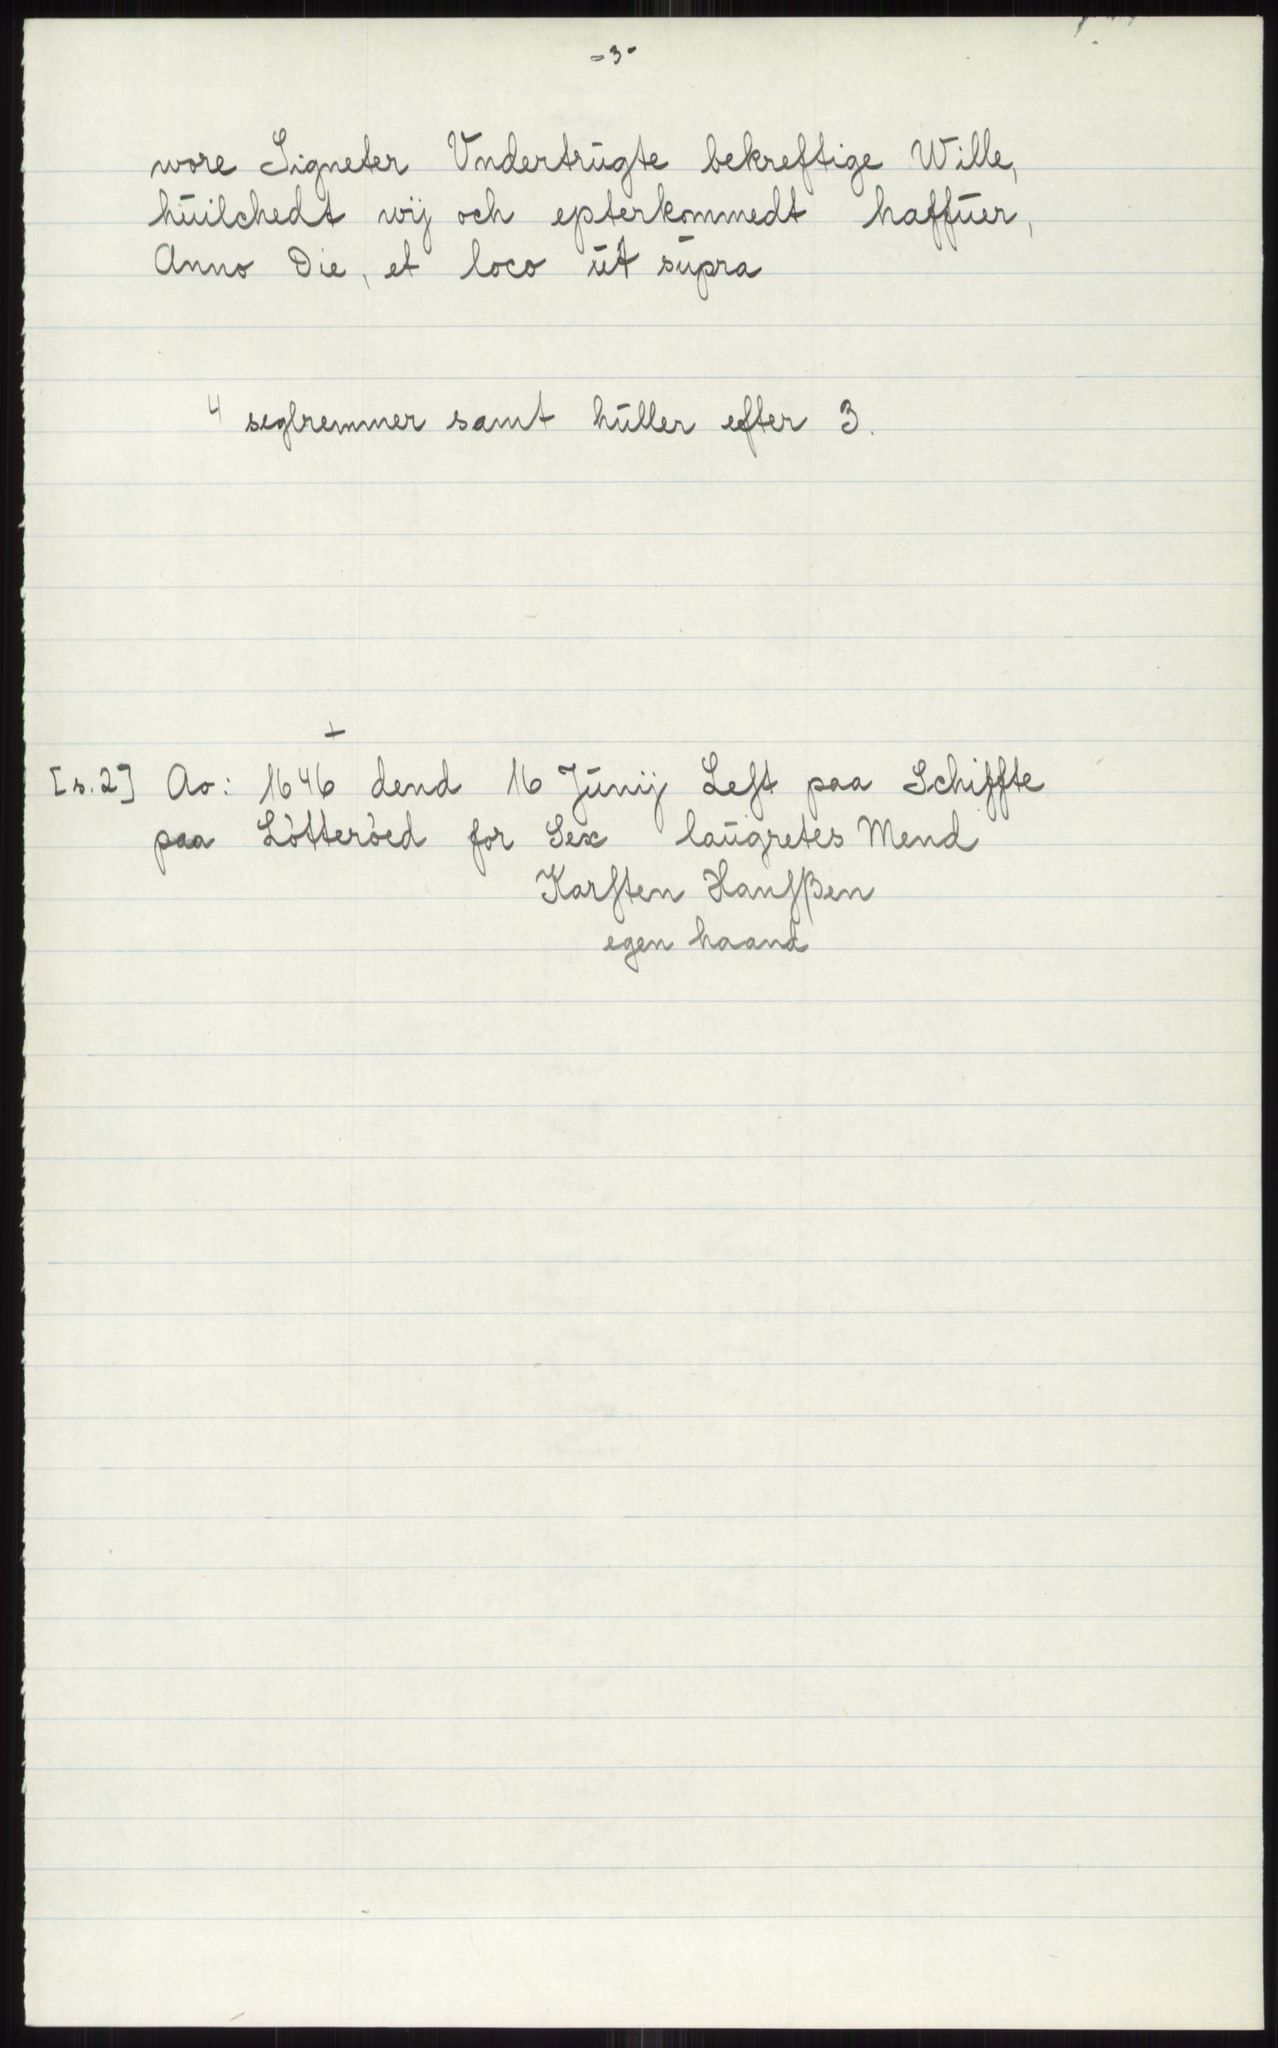 -3-
wore Signeter Vndertrügte bekreftige Wille,
hüilchedt wij och epterkommedt haffüer,
Anno Die, et loco üt süpra
4 seglremmer samt hüller efter 3.
+
[s.2] Ao: 1646 dend 16 Jünij Leſt paa Schiffte
paa Lòtteròed for Sex laügretes Mend
Karſten Hanſßen
egen haand